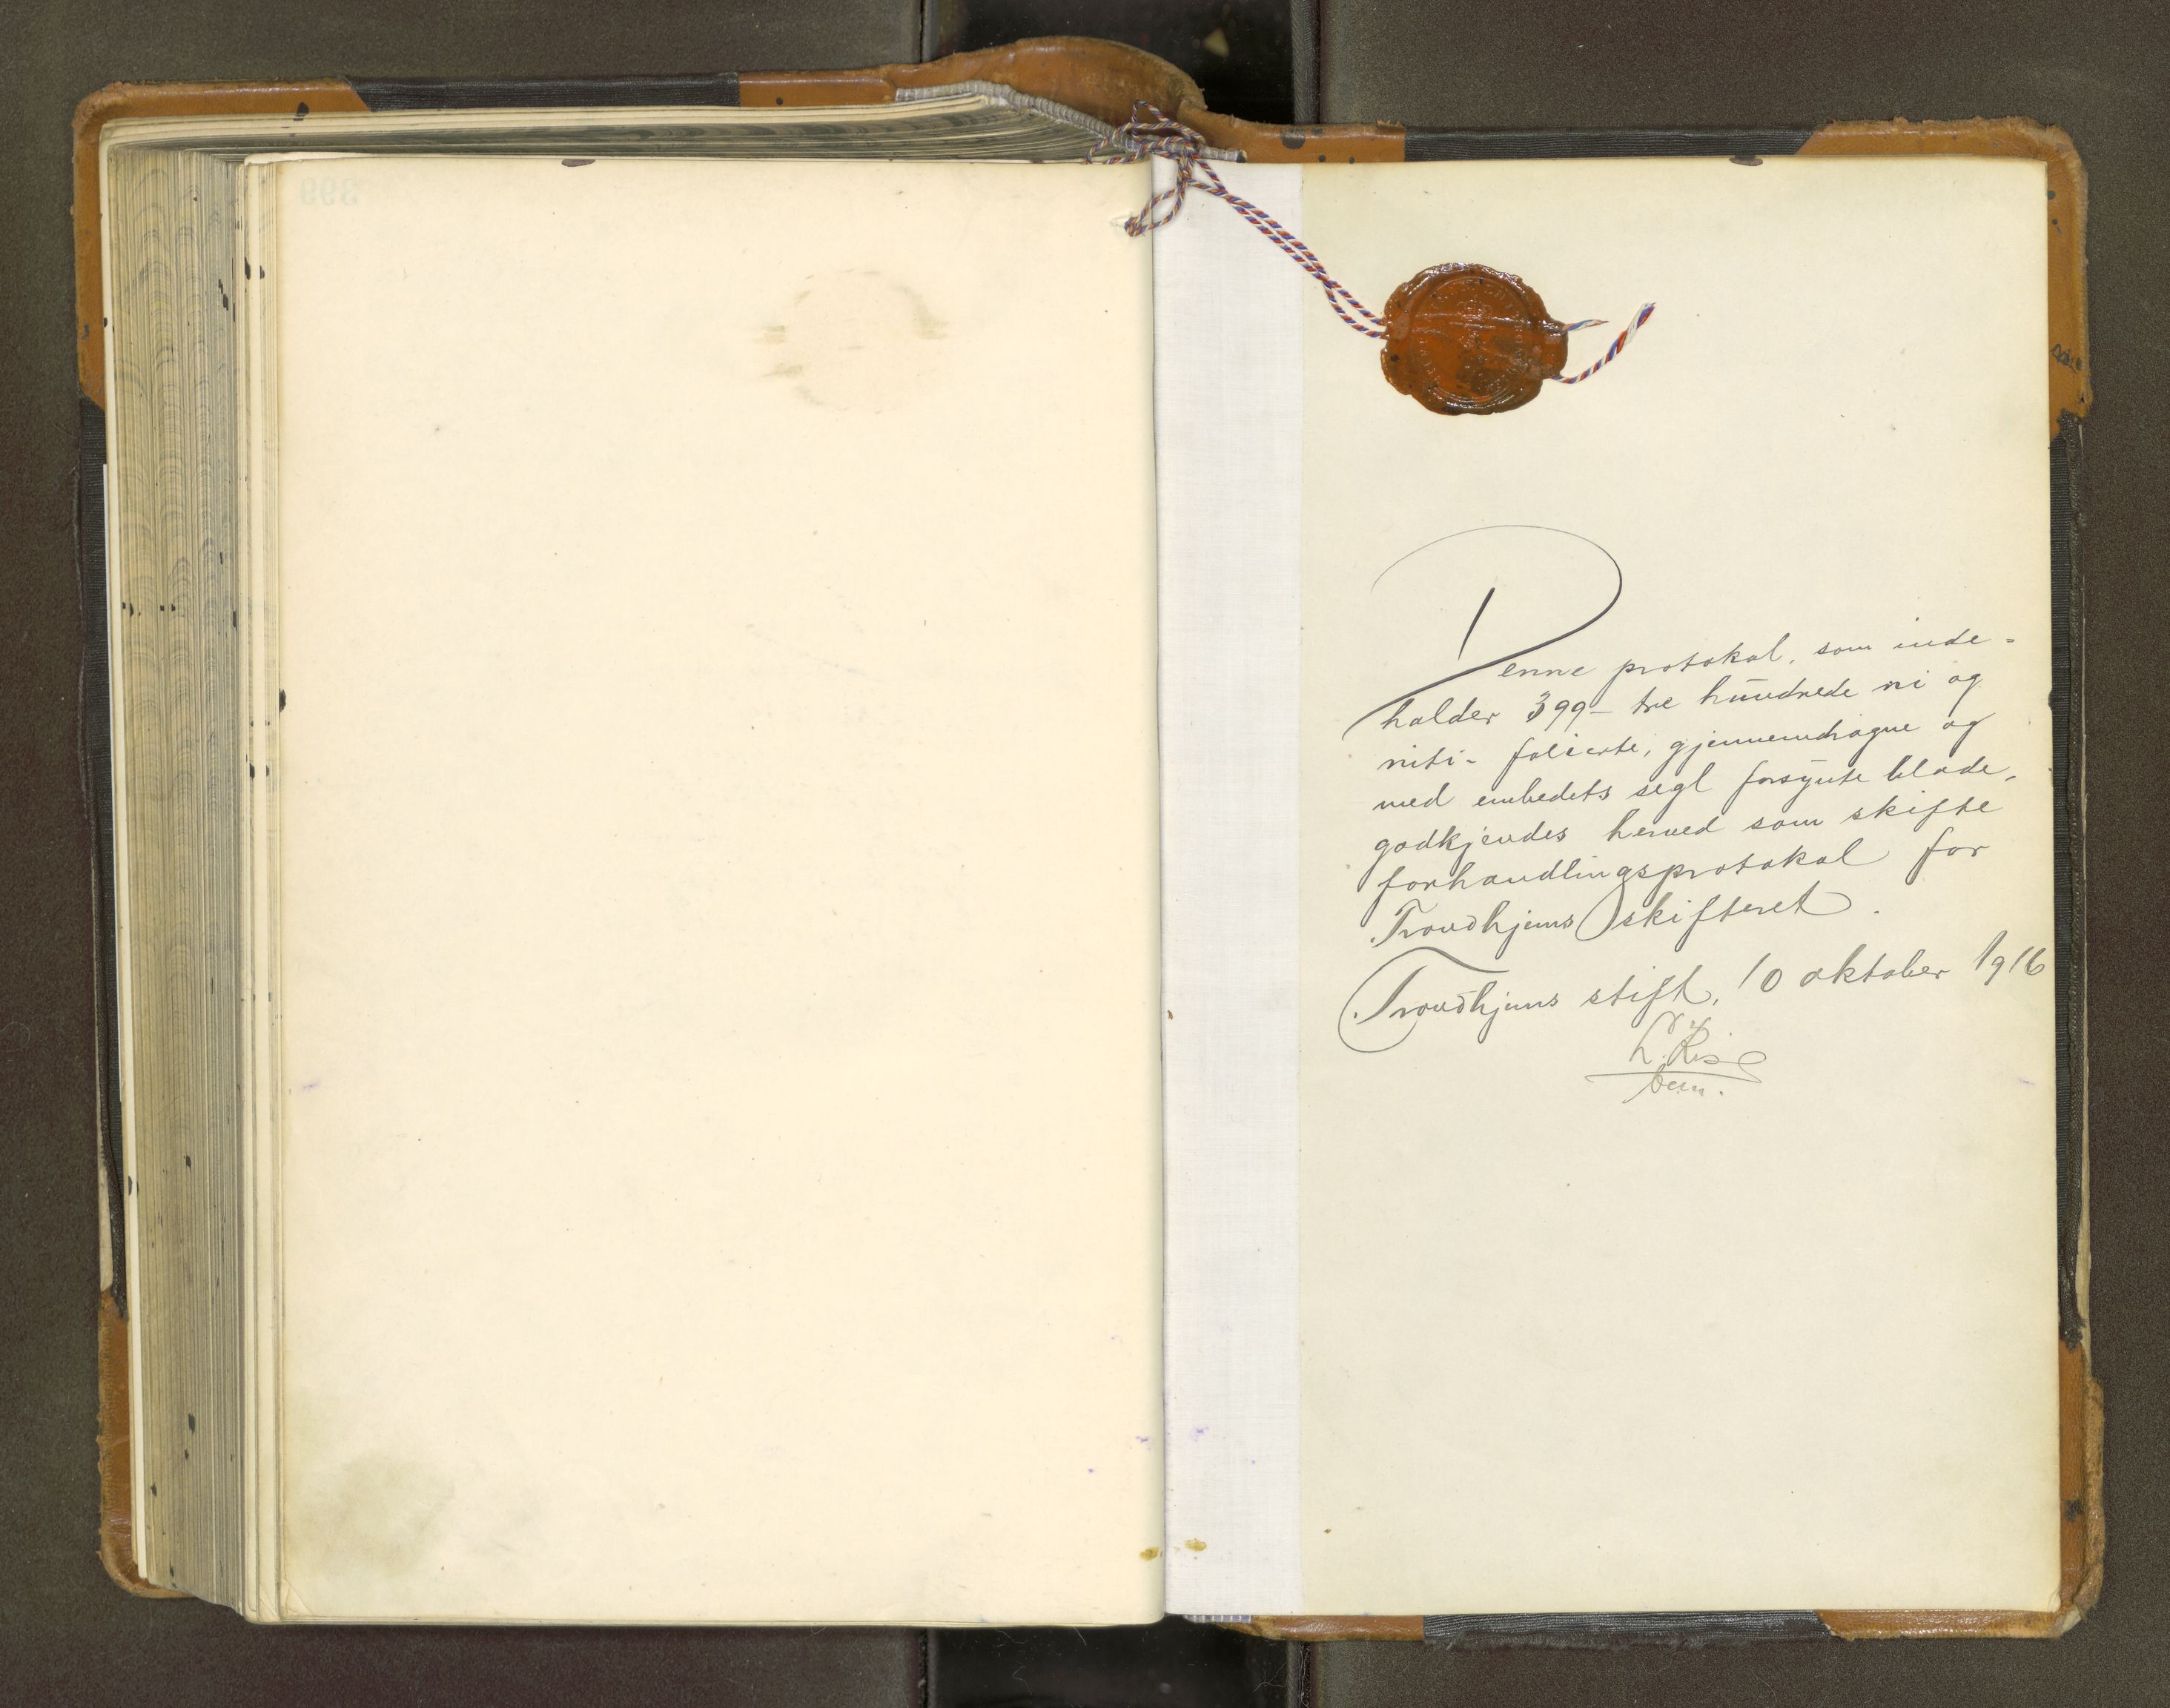 Denne protokol, som inde-
holder 399 - tre hundrede ni og
niti - folierte, gjennemdragne og
med embedets segl forsynte blade,
godkjendes herved som skifte
forhandlingsprotokol for
Trondhjems skifteret.
Trondhjems stift, 10 oktober 1916
399